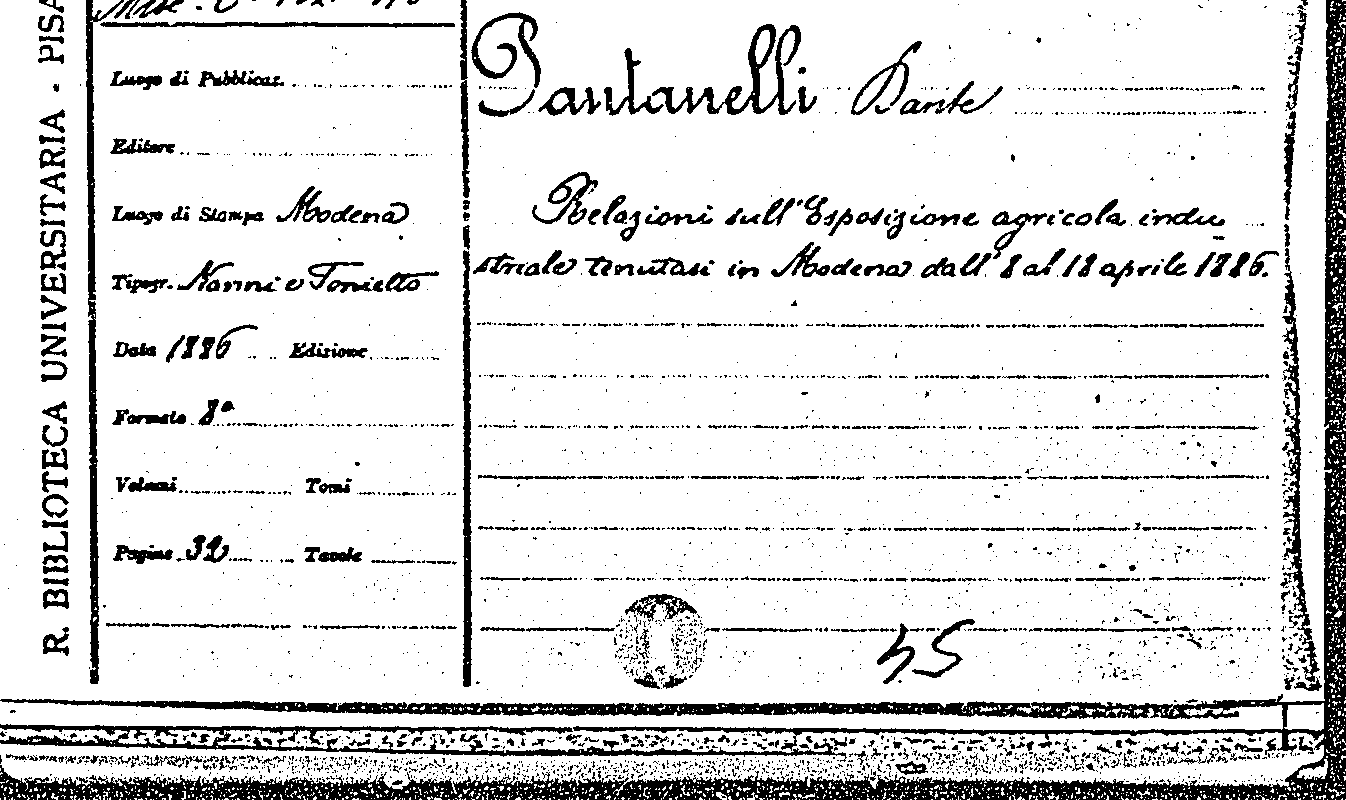 R. BIBLIOTECA UNIVERSITARIA - PISA
Luogo di Pubblicaz.
Editore
Luogo di Stampa Modena
Tipogr. Nanni e Tonietto
Data 1886 Edizione
Formato 8°
Volumi Tomi
Pagine 32 Tavole
Pantanelli Dante
Relazioni sull'Esposizione agricola indu
striale tenutasi in Modena dall'8 al 18 aprile 1886.
45